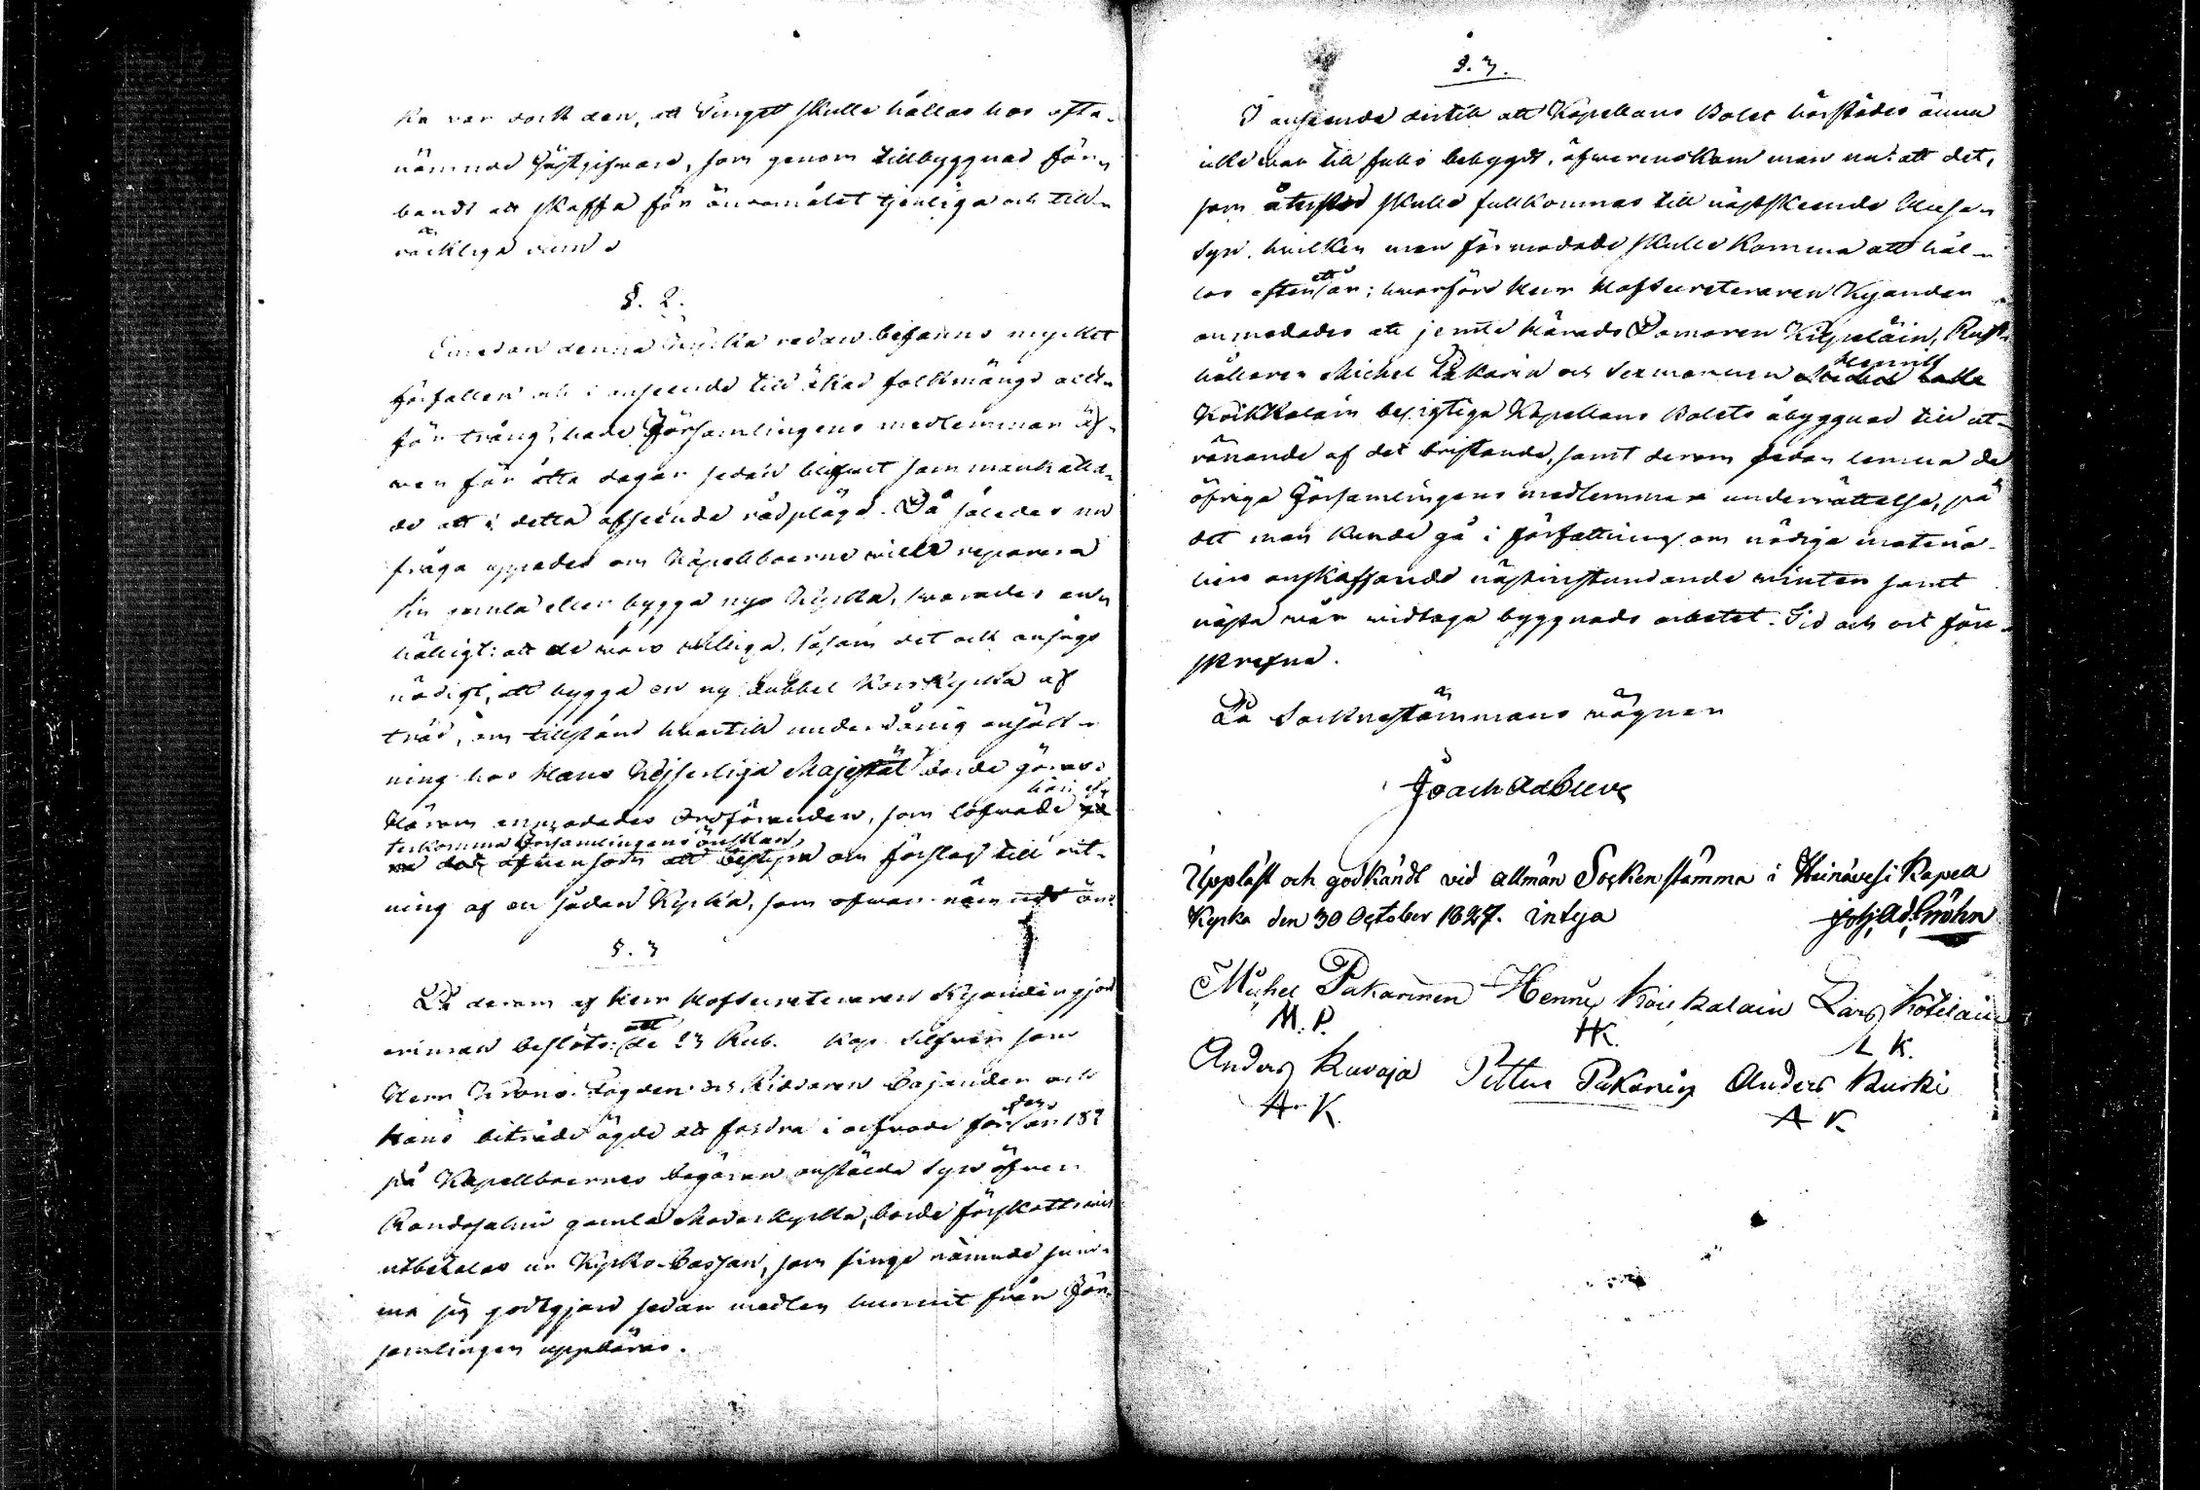 ka var dock den, att Tinget skulle hållas hos ofta-
nämnde Gästgifvare, som genom tillbyggnad för-
bandt att skaffa för ändamålet tjenliga och till-
räckliga rum.
§. 2.
Emedan denna Kyrka redan befanns mycket
förfallen och i anseende till ökad folkmängd allt-
för trång, hade Församlingens medlemmar äf-
ven för åtta dagar sedan blifvit sammankalla-
de att i detta afseende rådpläga. Då således nu
fråga uppades om Kapellboerne ville reparera
sin gamla eller bygga nya Kyrka, svarades en-
hälligt: att de voro villiga, såsom det ock ansågs
nödigt, att bygga en ny dubbel Kors Kyrka af
träd, om tillstånd hvartill underdånig ansök-
ning hos Hans Kejserliga Majestät borde göras.
Härom anmodades Ordföranden, som lofvade
härut-
terkomma Församlingens önskan
äfvensom att bestyra om förslag till rit-
ning af en sådan Kyrka, som ofvan nämndt är.
§. 3
På derom af Herr Hofsecreteraren Kyander gjord
att
beslöts: de 23 Rub. Kop. Silfver som
Herr Krono Fogden och Riddaren Cajander och
hans biträde ägde att fordra i arfvode för
den
år 182
på Kapellboernes begäran anstälde syn öfver
Randasalmi gamla Moderkyrka, borde förskottsvis
utbetalas ur Kyrko-Cassan, som finge nämnde sum-
ma sig godtgjord sedan medlen hunnit från För-
samlingen uppbäras.
§. 3.
I anseende dertill att Kapellans Bolet härstädes ännu
icke var till fullo bebygdt, öfverenskom man nu: att det,
som återstod skulle fullkomnas till nästskeende Huse-
syn, hvilken man förmodade skulle komma att hål-
las efter
ett
år; hvarföre Herr Hofsecreteraren Kyander
anmodades att jemte Härads Domaren Kilpeläin, Rust-
hållaren Michel Pakarin och Sexmannen
Henrik
Koikkalain besigtiga Kapellans Bolets åbyggnad till ut-
rönande af det bristande, samt derom sedan lemna de
öfriga Församlingens medlemmar underrättelse, på
det man kunde gå i författning om nödiga materia-
liers anskaffande nästinstundande vinter samt
nästa vår vidtaga byggnads arbetet. Tid och ort för-
skrefne.
På Sockenstämmans vägnar
Uppläst och godkändt vid allmän Sockenstämma i Heinävesi Kapell
Kyrka den 30 October 1827. intyga
Joh. Ad. Gröhn
Michel Pakarinen Henric Koickalain Lars Kotilain
M. P. HK. L K.
Anders Kuvaja Petter Pakarin Anders Kurki
A. K. A K.